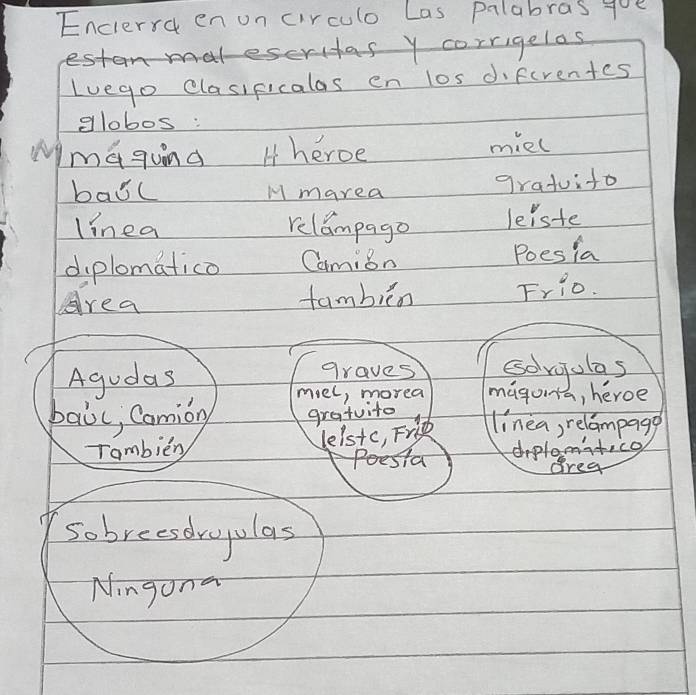 Encierra en un circulo Las palabras que
estan mal escritas y corrigelas
Luego clasificalas en los diferentes
globos:
M máquina H héroe miel
baúl M marea gratuito
línea relámpago leíste
diplomático Camión Poesía
área también Frío.
Agudas
baúl, Camión
También
graves
miel, marea
gratuito
leíste, Frío
Poesía
esdrújulas
máquina, héroe
línea, relámpago
diplomático
área
Sobreesdrujulas
Ninguna